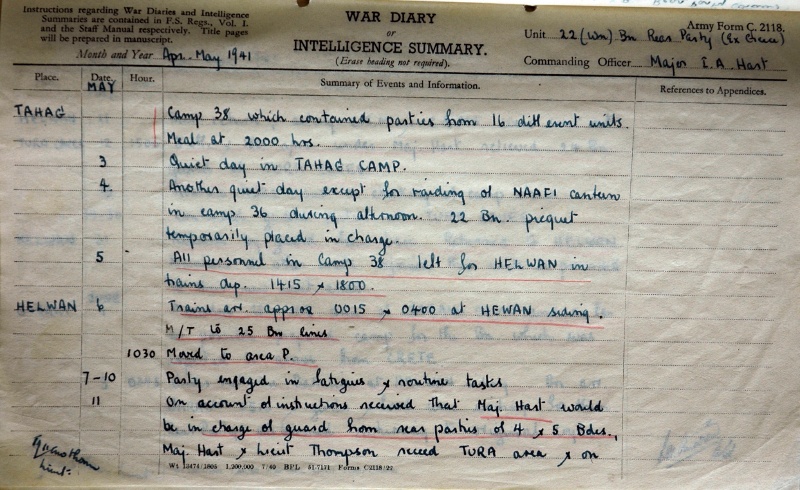 Instructions regarding War Diaries and Intelligence
Summaries are contained in F.S. Regs., Vol. I.
and the Staff Manual respectively. Title pages
will be prepared in manuscript.
Month and Year Apr. May 1941
WAR DIARY
or
INTELLIGENCE SUMMARY.
(Erase heading not required).
Army Form C. 2118.
Unit 22 (Wn) Bn Rear Party (Ex Greece)
Commanding Officer Major I.A. Hart
Place. Date. Hour. Summary of Events and Information. References to Appendices.
MAY
TAHAG Camp 38 which contained parties from 16 different units.
Meal at 2000 hrs.
3 Quiet day in TAHAG CAMP.
4. Another quiet day except for raiding of NAAFI canteen
in camp 36 during afternoon. 22 Bn. picquet
temporarily placed in charge.
5 All personnel in Camp 38 left for HELWAN in
trains dep. 1415 & 1800.
HELWAN 6 Trains arr. approx 0015 & 0400 at HEWAN siding.
M/T to 25 Bn lines
1030 Moved to area P.
7-10 Party engaged in fatigues & routine tasks
11 On account of instructions received that Maj. Hart would
be in charge of guard from rear parties of 4 & 5 Bdes.,
Maj. Hart & Lieut Thompson recced TURA area & on
Lieut.
Wt 13474/1805 1,200,000 7/40 BPL 51-7171 Forms C2118/22